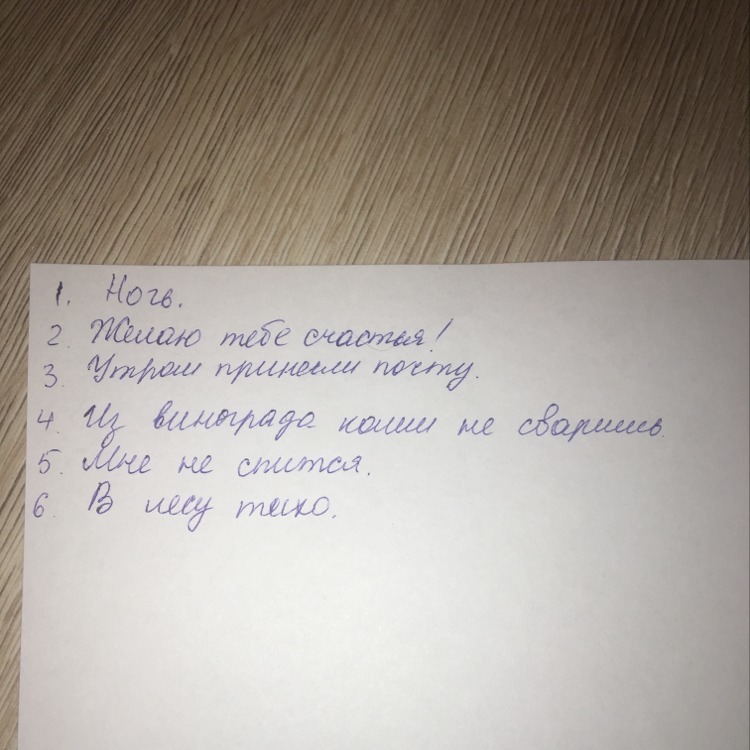 1. Ночь.
2. Желаю тебе счастья!
3. Утром принесли почту.
4. Из винограда каши не сваришь.
5. Мне не спится.
6. В лесу тихо.